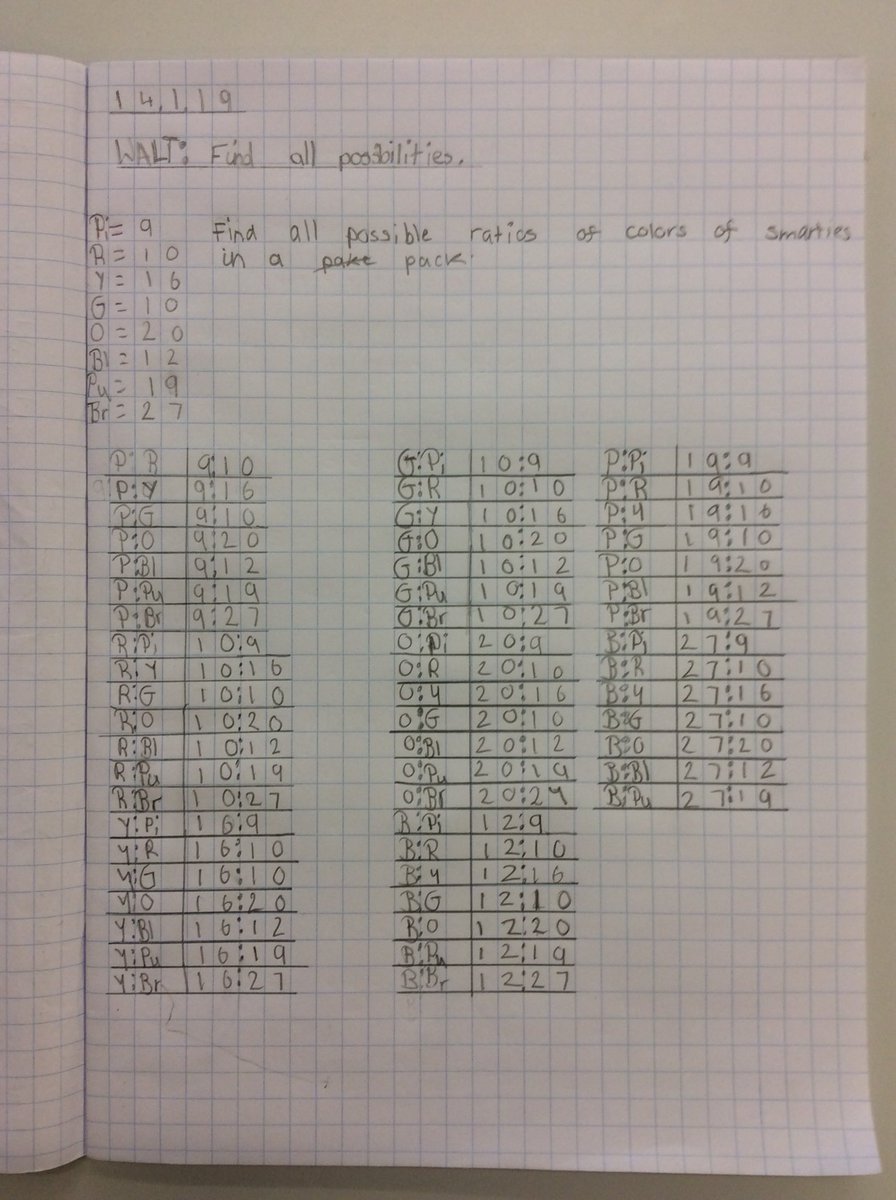 14.1.19
WALT: Find all possbilities.
Pi= 9 Find all possible ratios of colors of smarties
R= 10 in a pake pack.
Y = 16
G = 10
O = 20
Bl = 12
Pu = 19
Br = 27
P:R 9:10
P:Y 9:16
P:G 9:10
P:O 9:20
P:Bl 9:12
P:Pu 9:19
P:Br 9:27
R:Pi 10:9
R:Y 10:16
R:G 10:10
R:O 10:20
R:Bl 10:12
R:Pu 10:19
R:Br 10:27
Y:Pi 16:9
Y:R 16:10
Y:G 16:10
Y:O 16:20
Y:Bl 16:12
Y:Pu 16:19
Y:Br 16:27
G:Pi 10:9
G:R 10:10
G:Y 10:16
G:O 10:20
G:Bl 10:12
G:Pu 10:19
G:Br 10:27
O:Pi 20:9
O:R 20:10
O:Y 20:16
O:G 20:10
O:Bl 20:12
O:Pu 20:19
O:Br 20:27
B:Pi 12:9
B:R 12:10
B:Y 12:16
B:G 12:10
B:O 12:20
B:Pu 12:19
B:Br 12:27
P:Pi 19:9
P:R 19:10
P:Y 19:16
P:G 19:10
P:O 19:20
P:Bl 19:12
P:Br 19:27
B:Pi 27:9
B:R 27:10
B:Y 27:16
B:G 27:10
B:O 27:20
B:Bl 27:12
B:Pu 27:19